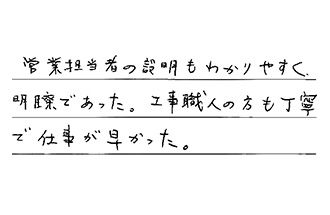 営業担当者の説明もわかりやすく、
明瞭であった。工事職人の方も丁寧
で仕事が早かった。